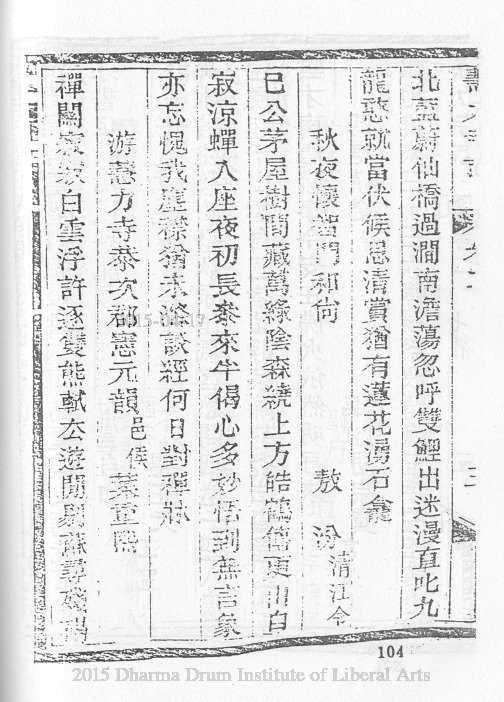 北藍蔚仙橋過澗南澹蕩忽呼雙鯉出迷漫直叱九
龍憨就當伏候恩清賞猶有蓮花湧石龕
秋夜懷智門和尚 敖汾清江令
巳公茅屋樹間藏萬綠陰森繞上方皓鶴僧更山白
寂涼蟬入座夜初長參來半偈心多妙悟到無言象
亦忘愧我塵襟猶未滌談經何日對禪牀
游慧力寺恭次郡憲元韻邑侯葉重熙
禪關寂寂白雲浮許逐雙熊軾去遊閒剔蘚尋殘碣
104
2015 Dharma Drum Institute of Liberal Arts